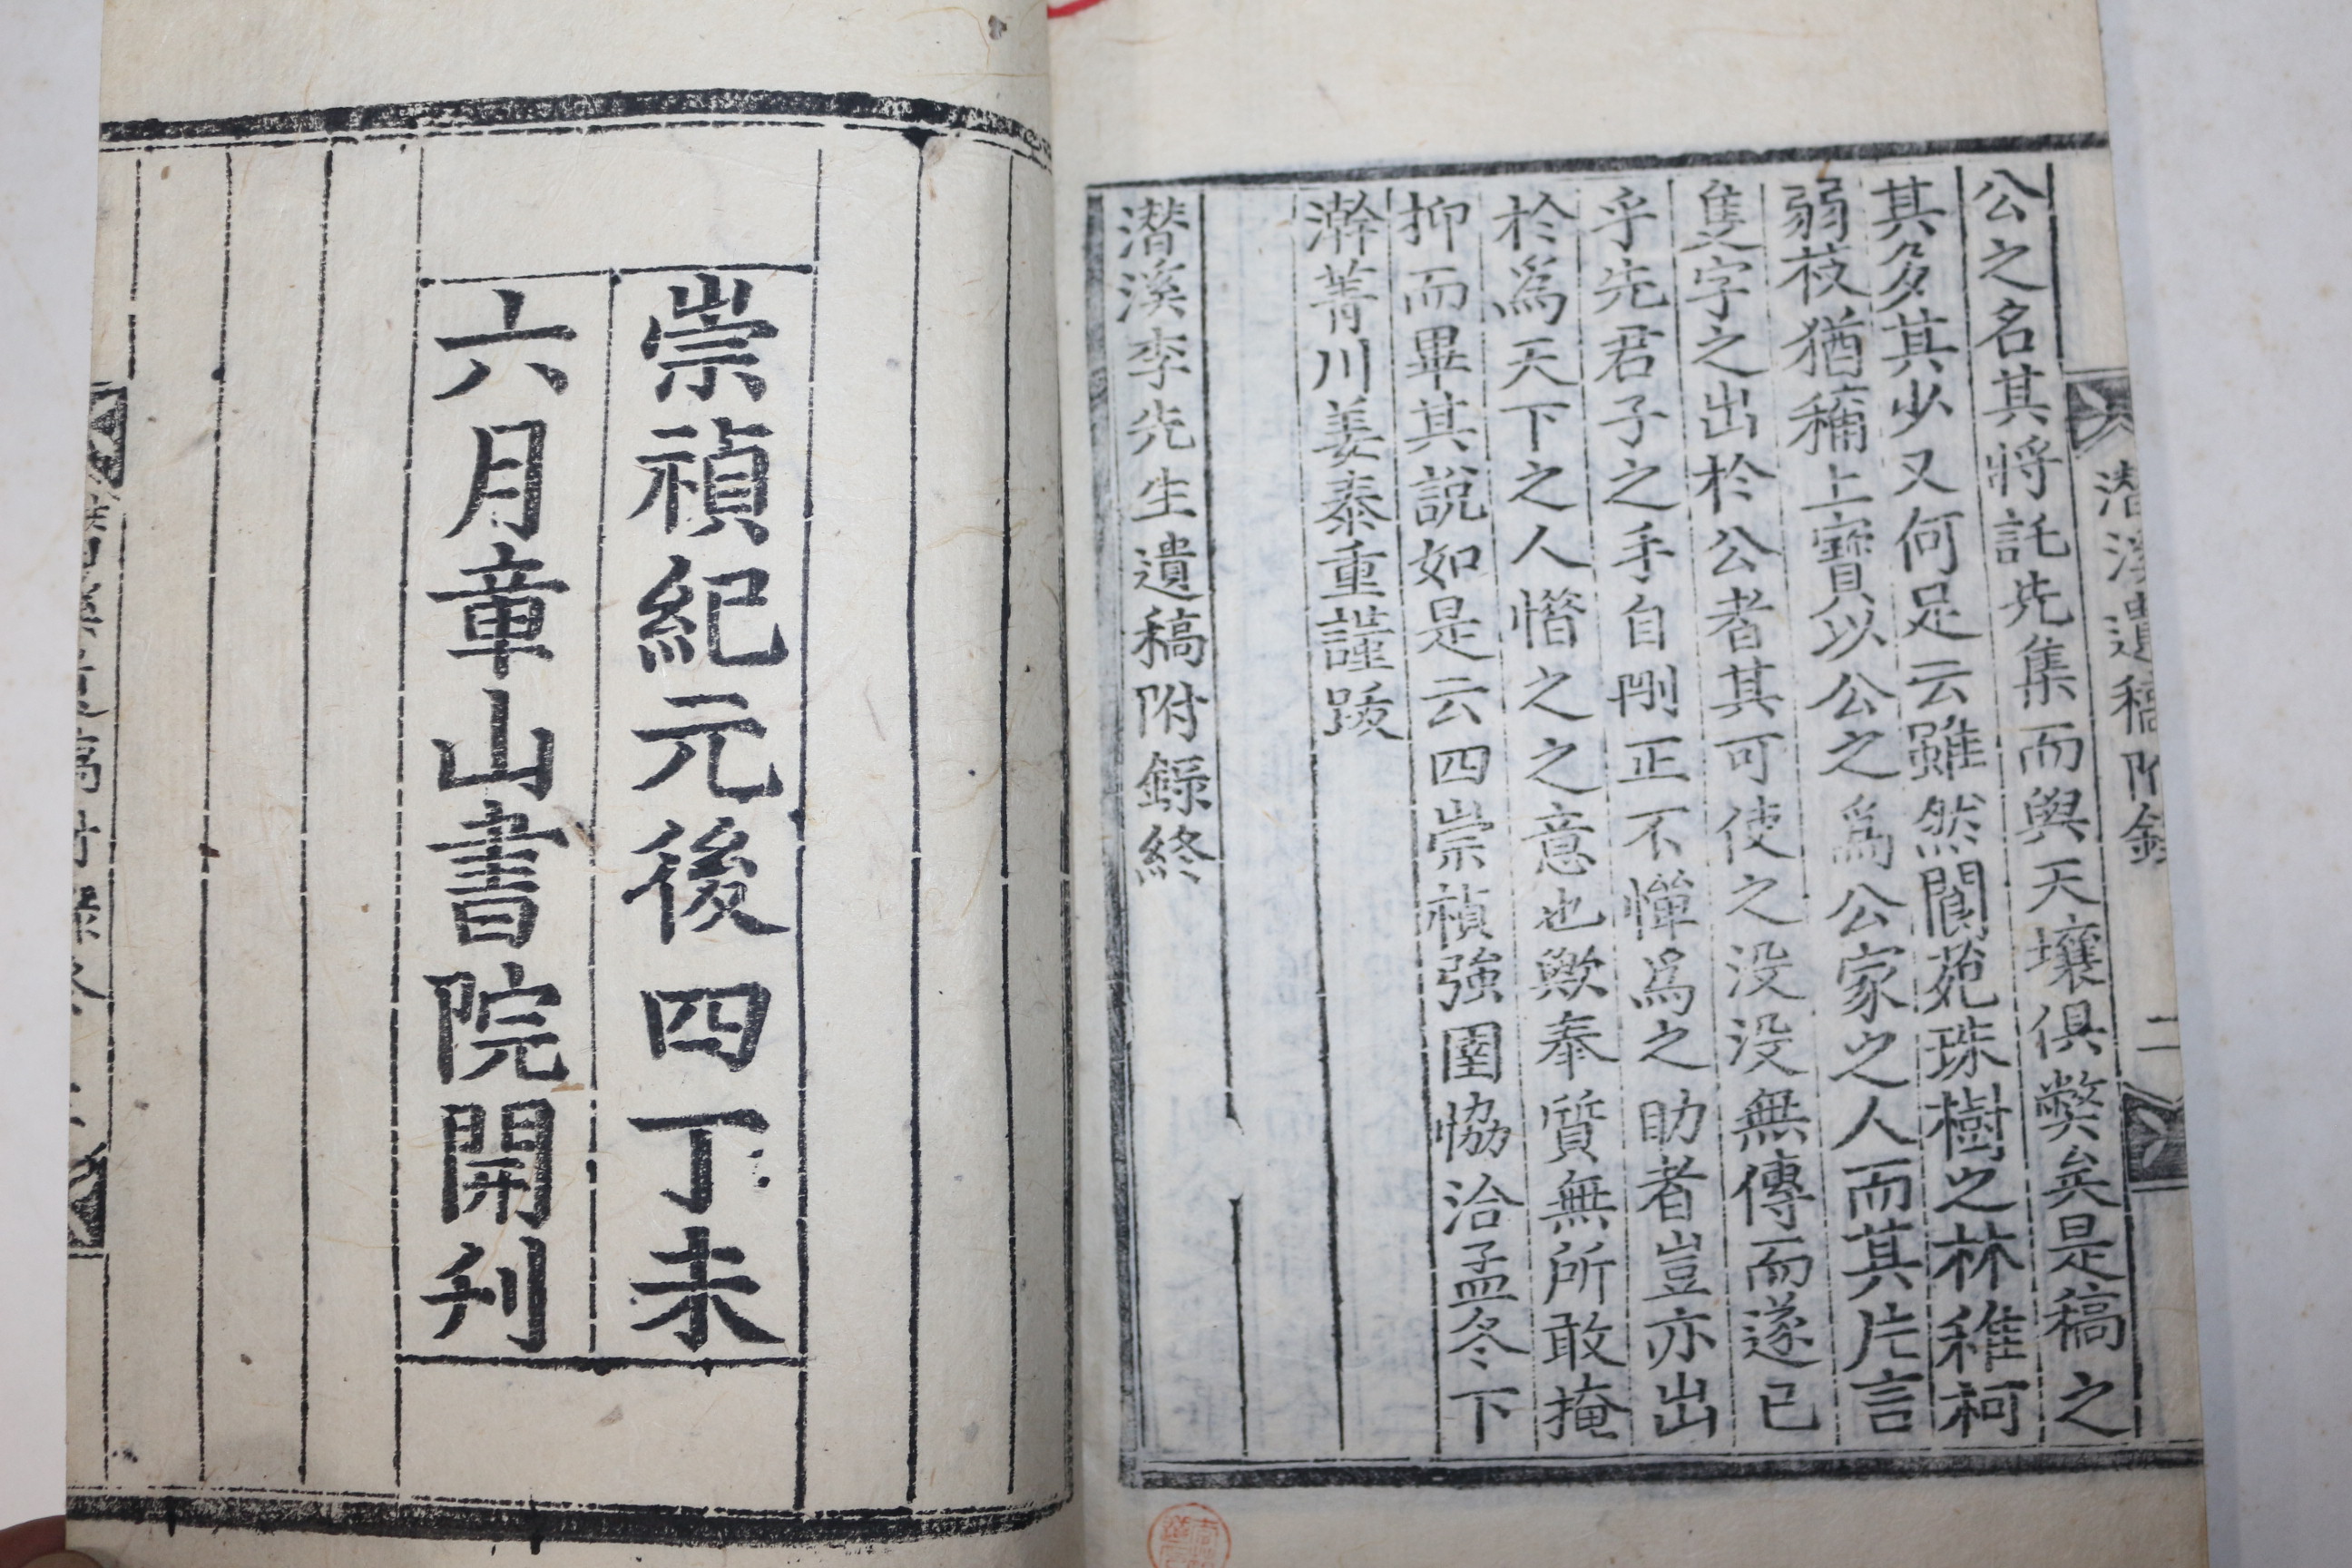 潜溪遺稿附錄 二
公之名其將託先集而與天壤俱弊矣是稿之
其多其少又何足云雖然閬苑珠樹之林稚柯
弱枝猶稱上寶以公之爲公家之人而其片言
隻字之出於公者其可使之没没無傳而遂已
乎先君子之手自刪正不憚爲之助者豈亦出
於爲天下之人慴之之意也歟奉質無所敢掩
抑而畢其說如是云四崇禎強圉協洽孟冬下
澣菁川姜泰重謹跋
潜溪李先生遺稿附錄終
崇禎紀元後四丁未
六月章山書院開刋